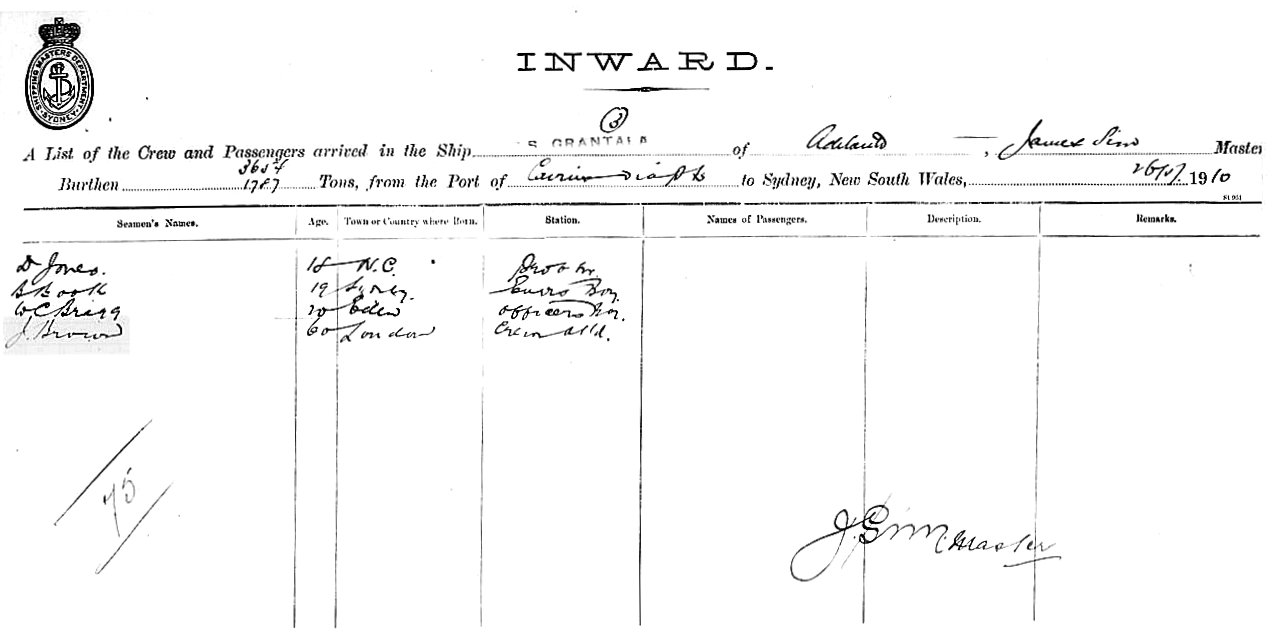 SHIPPING MASTERS DEPARTMENT
SYDNEY
INWARD.
3
A List of the Crew and Passengers arrived in the Ship S GRANTALA of Adelaide, James Sim Master
3654
Burthen 1787 Tons, from the Port of to Sydney, New South Wales, 1910
Seamen's Names. Age. Town or Country where Born. Station. Names of Passengers. Description. Remarks.
D Jones. 18 N.C.
B Book 19 Sydney. Boy.
W C Bragg 20 Eden Officers Boy.
J. Brown 60 London
75
J. Sim Master